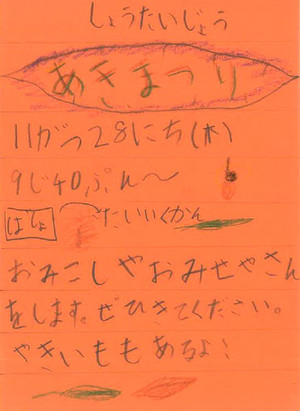 しょうたいじょう
あきまつり
11がつ28にち(木)
9じ40ぷん〜
ばしょ たいいくかん
おみこしやおみせやさん
をします。ぜひきてください。
やきいももあるよ!